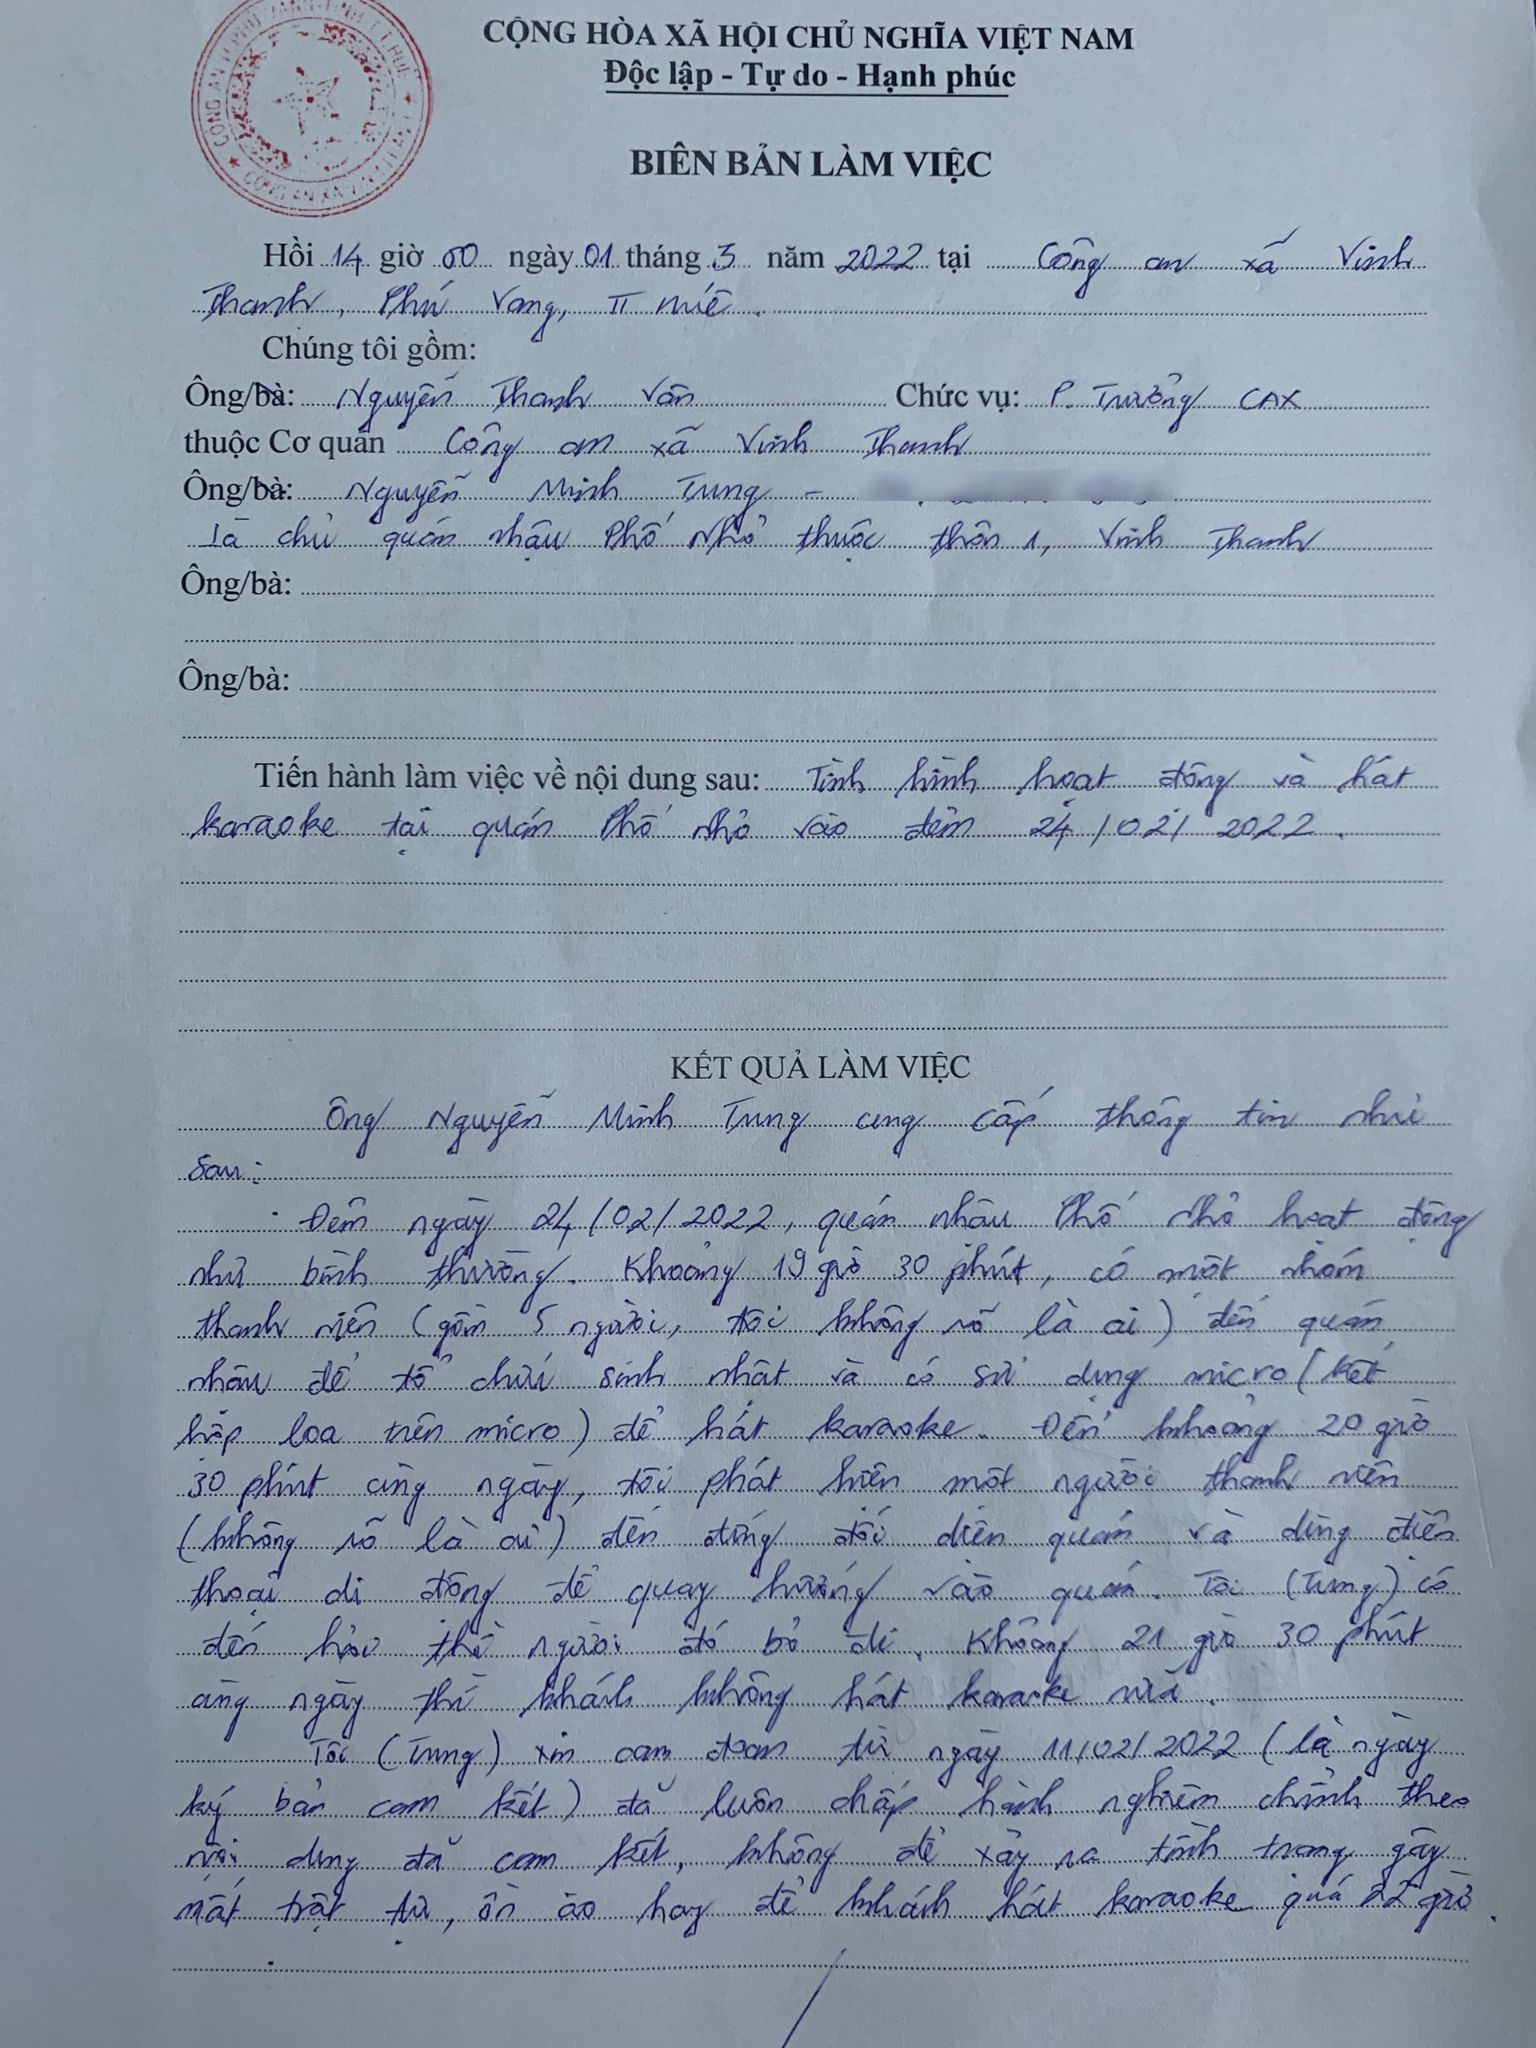 CỘNG HÒA XÃ HỘI CHỦ NGHĨA VIỆT NAM
Độc lập - Tự do - Hạnh phúc
BIÊN BẢN LÀM VIỆC
Hồi 14 giờ 00 ngày 01 tháng 3 năm 2022 tại Công an xã Vinh
Thanh, Phú Vang, TT Huế.
Chúng tôi gồm:
Ông/bà: Nguyễn Thanh Vân Chức vụ: P. Trưởng CAX
thuộc Cơ quan Công an xã Vinh Thanh
Ông/bà: Nguyễn Minh Tung -
Là chủ quán nhậu Phố Nhỏ thuộc thôn 1, Vinh Thanh
Ông/bà:
Ông/bà:
Tiến hành làm việc về nội dung sau: Tình hình hoạt động và hát
karaoke tại quán Phố Nhỏ vào đêm 24/02/2022.
KẾT QUẢ LÀM VIỆC
Ông Nguyễn Minh Tung cung cấp thông tin như
sau:
Đêm ngày 24/02/2022, quán nhậu Phố Nhỏ hoạt động
như bình thường. Khoảng 19 giờ 30 phút, có một nhóm
thanh niên (gồm 5 người, tôi không rõ là ai) đến quán
nhậu để tổ chức sinh nhật và có sử dụng micro (kết
hợp loa trên micro) để hát karaoke. Đến khoảng 20 giờ
30 phút cùng ngày, tôi phát hiện một người thanh niên
(không rõ là ai) đến đứng đối diện quán và dùng điện
thoại di động để quay hướng vào quán. Tôi (Tung) có
đến hỏi thì người đó bỏ đi. Khoảng 21 giờ 30 phút
cùng ngày thì khách không hát karaoke nữa.
Tôi (Tung) xin cam đoan từ ngày 11/02/2022 (là ngày
ký bản cam kết) đã luôn chấp hành nghiêm chỉnh theo
nội dung đã cam kết, không để xảy ra tình trạng gây
mất trật tự, ồn ào hay để khách hát karaoke quá 22 giờ.